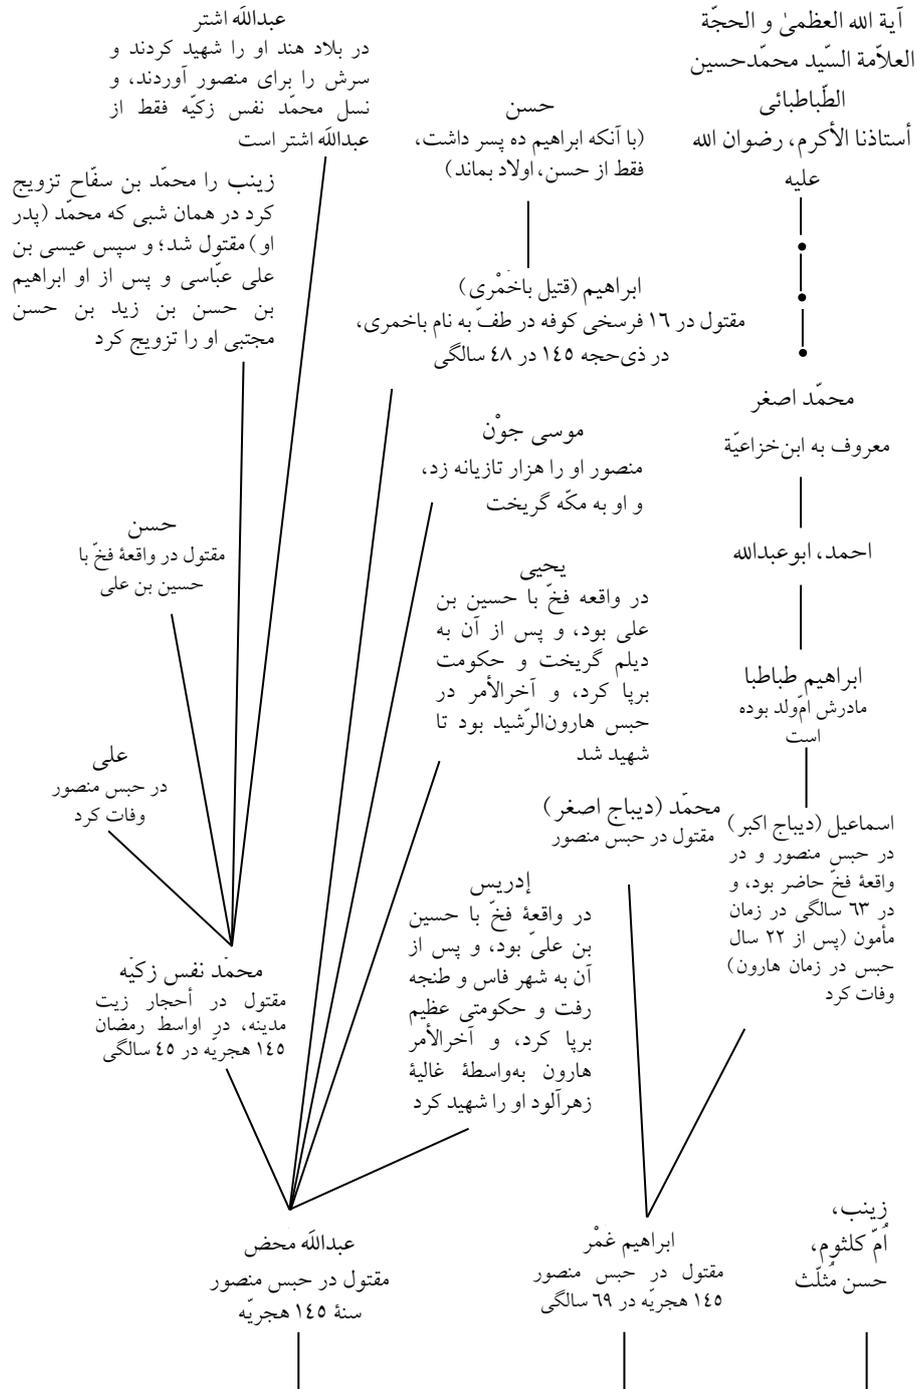 آیة الله العظمیٰ و الحجّة
العلاّمة السّید محمّدحسین
الطّباطبائی
أستاذنا الأکرم، رضوان الله
علیه
محمّد اصغر
معروف به ابن‌خزاعیّة
احمد، ابوعبدالله
ابراهیم طباطبا
مادرش امّ‌ولد بوده
است
اسماعیل (دیباج اکبر)
در حبس منصور و در
واقعهٔ فخّ حاضر بود، و
در ٦٣ سالگی در زمان
مأمون (پس از ٢٢ سال
حبس در زمان هارون)
وفات کرد
حسن
(با آنکه ابراهیم ده پسر داشت،
فقط از حسن، اولاد بماند)
ابراهیم (قتیل باخَمْری)
مقتول در ١٦ فرسخی کوفه در طفّ به نام باخمری،
در ذی‌حجه ١٤٥ در ٤٨ سالگی
موسی جوْن
منصور او را هزار تازیانه زد،
و او به مکّه گریخت
یحیی
در واقعه فخّ با حسین بن
علی بود، و پس از آن به
دیلم گریخت و حکومت
برپا کرد، و آخرالأمر در
حبس هارون‌الرّشید بود تا
شهید شد
محمّد (دیباج اصغر)
مقتول در حبس منصور
إدریس
در واقعهٔ فخّ با حسین
بن علیّ بود، و پس از
آن به شهر فاس و طنجه
رفت و حکومتی عظیم
برپا کرد، و آخرالأمر
هارون به‌واسطهٔ غالیهٔ
زهرآلود او را شهید کرد
عبدالله اشتر
در بلاد هند او را شهید کردند و
سرش را برای منصور آوردند، و
نسل محمّد نفس زکیّه فقط از
عبدالله اشتر است
زینب را محمّد بن سفّاح تزویج
کرد در همان شبی که محمّد (پدر
او) مقتول شد؛ و سپس عیسی بن
علی عبّاسی و پس از او ابراهیم
بن حسن بن زید بن حسن
مجتبی او را تزویج کرد
حسن
مقتول در واقعهٔ فخّ با
حسین بن علی
علی
در حبس منصور
وفات کرد
محمّد نفس زکیّه
مقتول در أحجار زیت
مدینه، در اواسط رمضان
١٤٥ هجریّه در ٤٥ سالگی
زینب،
اُمّ کلثوم،
حسن مُثلّث
ابراهیم غَمْر
مقتول در حبس منصور
١٤٥ هجریّه در ٦٩ سالگی
عبدالله محض
مقتول در حبس منصور
سنهٔ ١٤٥ هجریّه